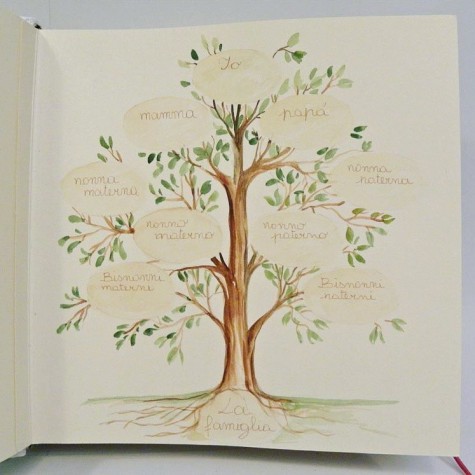 Io
mamma
papá
nonna
materna
nonna
paterna
nonno
materno
nonno
paterno
Bisnonni
materni
Bisnonni
paterni
La
famiglia